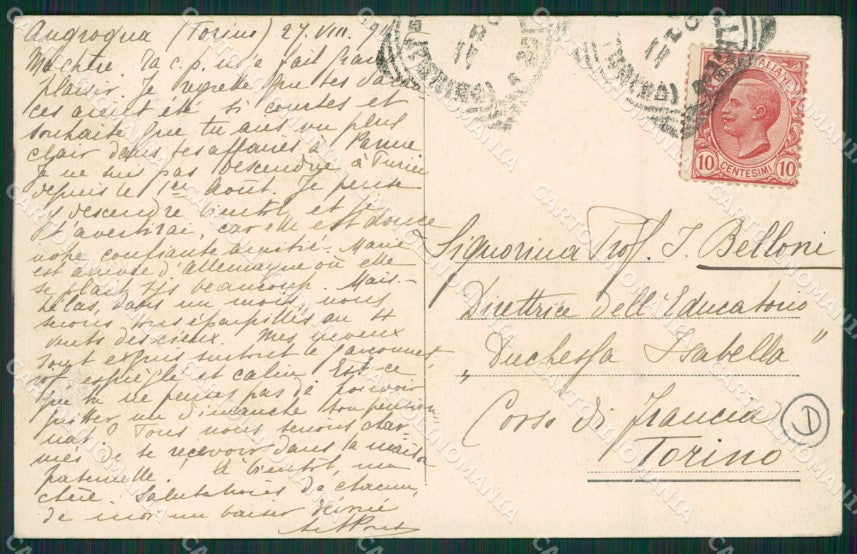 Angrogna (Torino) 27. VIII. 911
Ma chère. Ta c.p. m'a fait grand
plaisir. Je regrette que tes vacan
ces aient été si courtes et
souhaite que tu aies vu plus
clair dans tes affaires à Parme
Je ne suis pas descendue à Turin
depuis le 1er Août. Je pense
y descendre bientôt et
t'avertirai, car elle est douce
notre confiante amitié. Marie
est arrivée d'Allemagne où elle
se plaît beaucoup. Mais
hélas, dans un mois nous
serons tous éparpillés au 4
vents des cieux. Mes neveux
sont exquis surtout le garçonnet,
espiègle et calin. Est-ce
que tu ne penses pas de pouvoir
quitter un dimanche ton pension
nat? Tous nous serons char
més de te recevoir dans la maison
paternelle. À bientôt, ma
chère. Salutations de chacun,
de moi un baiser
Signorina Prof. I. Belloni
Direttrice dell'Educatorio
"Duchessa Isabella"
Corso di Francia
Torino
POSTE ITALIANE
10 CENTESIMI 10
(TORINO)
(TORINO)
CARTOLINOMANIA